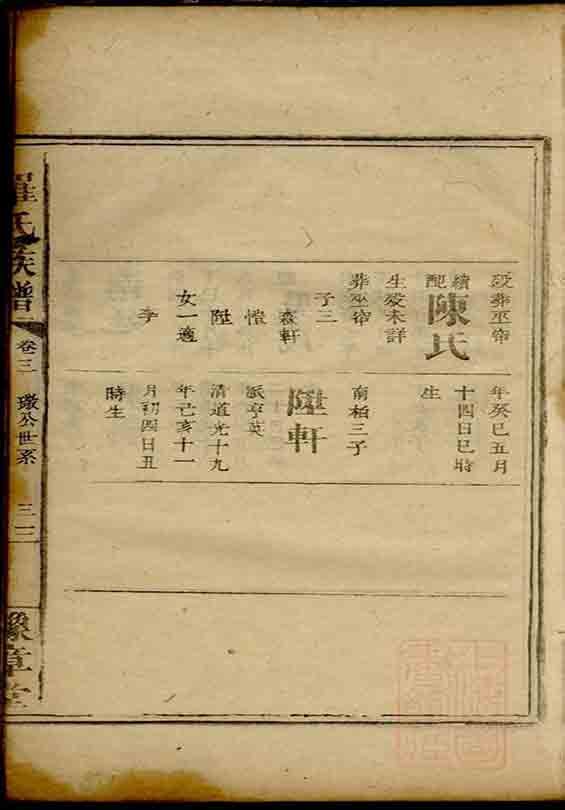 歿葬巫帘
續配陳氏
生歿未詳
葬巫帘
子三
森軒
愷
陞
女一適
李
年癸巳五月
十四日巳時
生
南柏三子
陞軒
派亨英
清道光十九
年己亥十一
月初四日丑
時生
羅氏族譜
卷三
璈公世系
三二
豫章堂